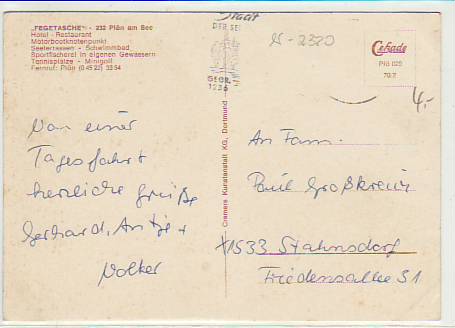 „FEGETASCHE" - 232 Plön am See
Hotel - Restaurant
Motorbootknotenpunkt
Seeterrassen - Schwimmbad
Sportfischerei in eigenen Gewässern
Tennisplätze - Minigolf
Fernruf: Plön (0 45 22) 33 54
Stadt
DER SE
GEGR.
1236
W-2320
Cekade
Plö 025
70/2
4,-
Cramers Kunstanstalt KG, Dortmund
Von einer
Tagesfahrt
herzliche Grüße
Gerhard, Antje +
Volker
An Fam.
Paul Großkreuz
X1533 Stahnsdorf
Friedensallee 31